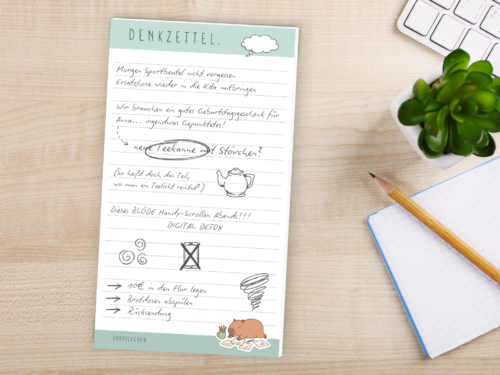 DENKZETTEL.
Morgen Sportbeutel nicht vergessen
Ersatzhose wieder in die Kita mitbringen
Wir brauchen ein gutes Geburtstagsgeschenk für
Anna... irgendwas Gepunktetes!
neue Teekanne mit Stövchen?
(So heißt doch das Teil,
wo man ein Teelicht reintut?)
Dieses BLÖDE Handy-Scrollen Abends!!!
DIGITAL DETOX
10€ in den Flur legen
Brotdosen abspülen
Rücksendung